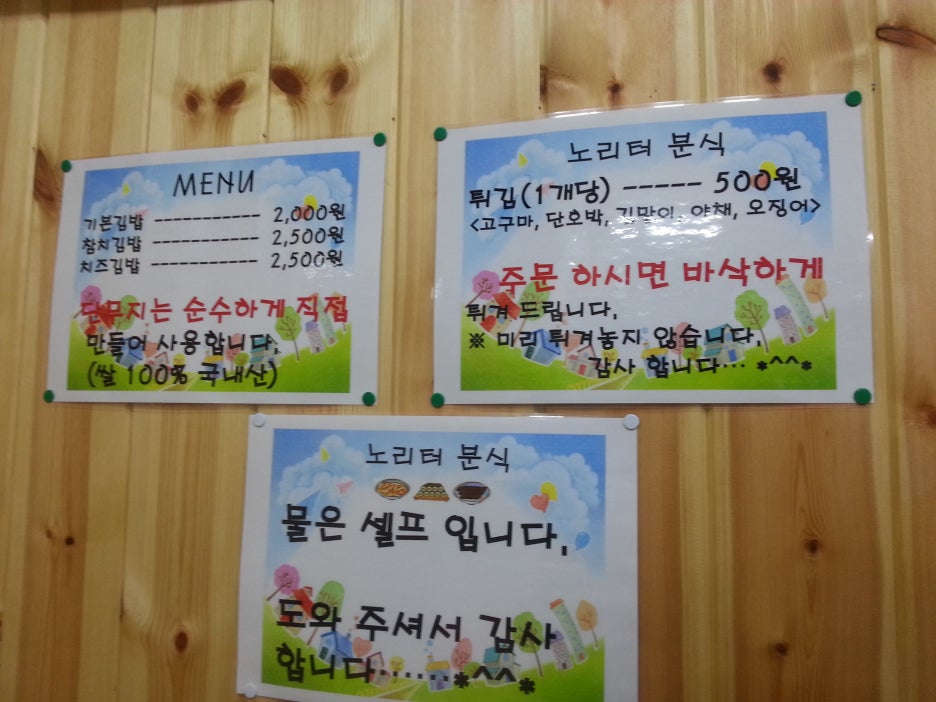 MENU
기본김밥 ----------- 2,000원
참치김밥 ----------- 2,500원
치즈김밥 ----------- 2,500원
단무지는 순수하게 직접
만들어 사용합니다.
(쌀 100% 국내산)
노리터 분식
튀김(1개당) ----- 500원
<고구마, 단호박, 김말이, 야채, 오징어>
주문 하시면 바삭하게
튀겨 드립니다.
※ 미리 튀겨놓지 않습니다.
감사 합니다··· *^^*
노리터 분식
물은 셀프 입니다.
도와 주셔서 감사
합니다·······*^^*